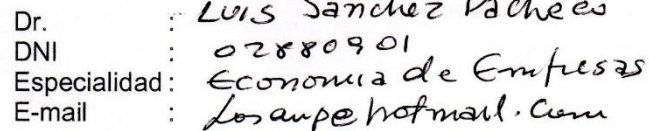 Dr. : Luis Sanchez Pacheco
DNI : 02880901
Especialidad : Economia de Empresas
E-mail : hotmail.com